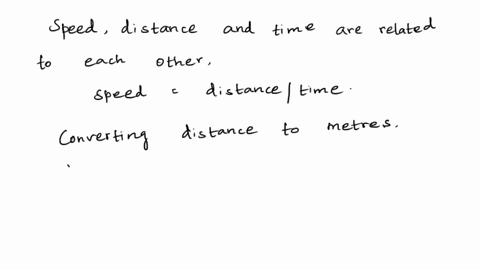 Speed, distance and time are related
to each other.
speed = distance / time.
Converting distance to metres.